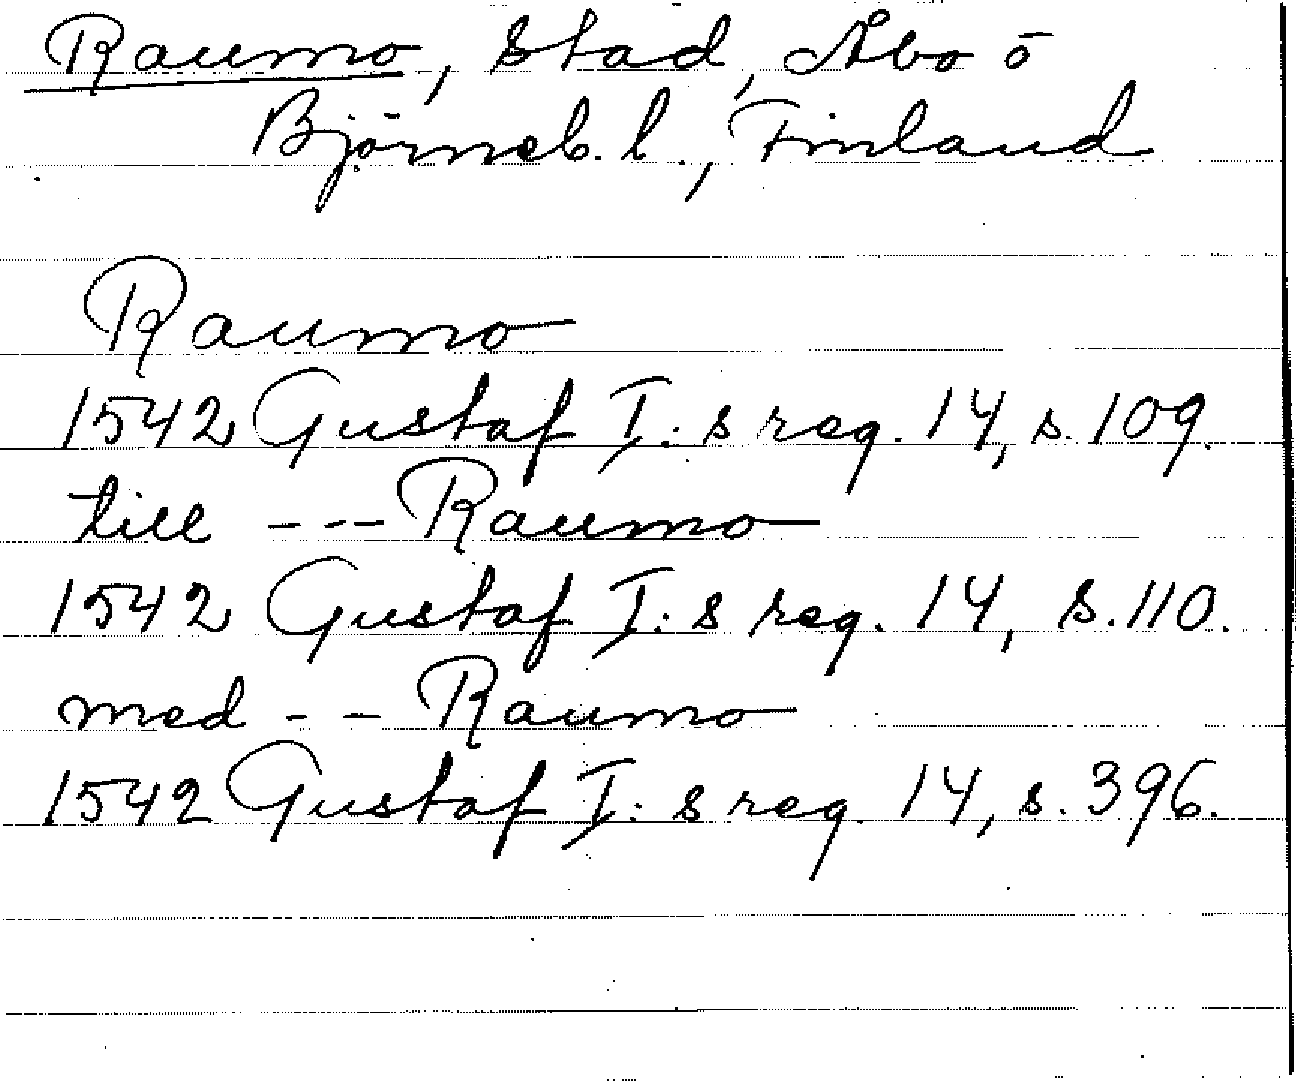 Raumo, Stad, Åbo o
Björneb. l., Finland
Raumo
1542 Gustaf I:s reg. 14, s. 109.
till --- Raumo
1542 Gustaf I:s reg. 14, s. 110.
med -- Raumo
1542 Gustaf I:s reg. 14, s. 396.